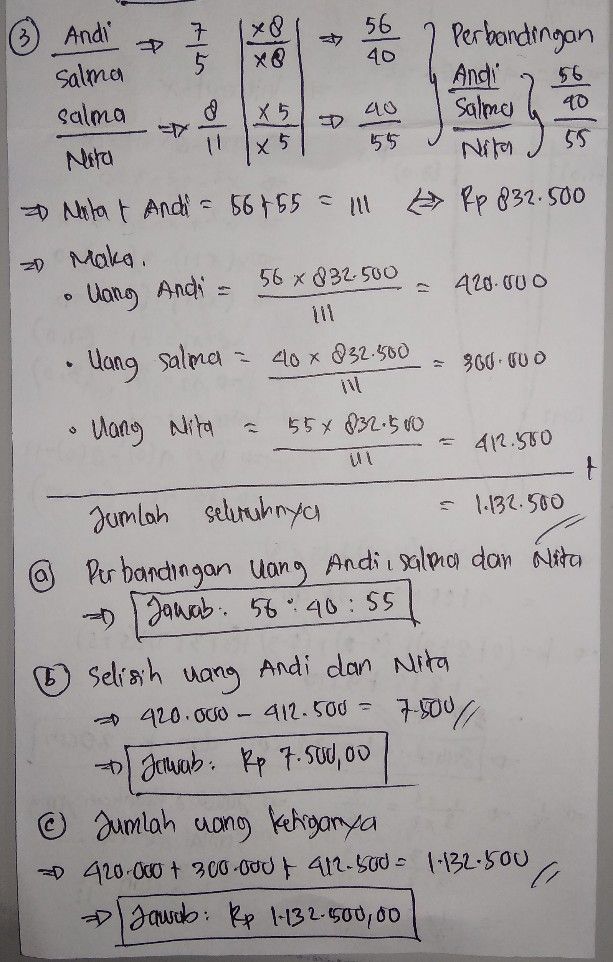 ③ Andi/Salma ⇒ 7/5 | x8/x8 | ⇒ 56/40 } Perbandingan
Salma/Nita ⇒ 8/11 | x5/x5 | ⇒ 40/55 } Andi/Salma/Nita } 56/40/55
⇒ Nita + Andi = 56+55 = 111 ⇔ Rp 832.500
⇒ Maka,
• Uang Andi = 56 x 832.500 / 111 = 420.000
• Uang Salma = 40 x 832.500 / 111 = 300.000
• Uang Nita = 55 x 832.500 / 111 = 412.500 +
Jumlah seluruhnya = 1.132.500 //
ⓐ Perbandingan Uang Andi, Salma dan Nita
⇒ Jawab: 56 : 40 : 55
ⓑ Selisih uang Andi dan Nita
⇒ 420.000 - 412.500 = 7.500 //
⇒ Jawab: Rp 7.500,00
ⓒ Jumlah uang ketiganya
⇒ 420.000 + 300.000 + 412.500 = 1.132.500 //
⇒ Jawab: Rp 1.132.500,00